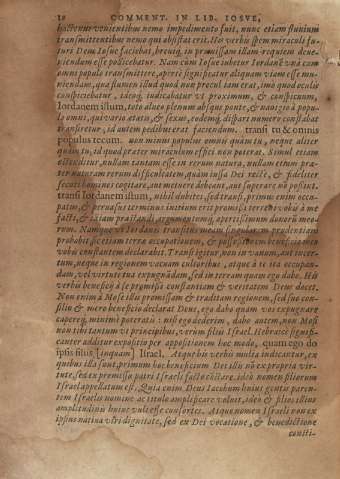 10 COMMENT. IN LIB. IOSVE,
hactenus venientibus nemo impedimento fuit, nunc etiam flumium
transmittentibus nemo qui obsistat erit. Ho verbis spem miraculi fu-
turi Deus Iosue faciebat, brevíq, in promissam illam requiem deue-
niendum esse pollicebatur. Nam cùm Iosue iubetur Iordanē vnà cum
omni populo transmittere, apertè significatur aliquam viam esse mu-
niendam, qua flumen illud quod nun præcul tam erat, imo quod oculis
conspiciebatur, itáq, iudicabatur vt proximum, & conspicuum,
Iordanem illum, toto alueo plenum absque ponte, & nauigio à popu-
lo omni, qui vario ætatis, & sexus, eodemq́, dispari numero constabat
transiretur, id autem pedibus erat faciendum. transi tu & omnis
populus tecum. non minùs populus omnis quàm tu, neque aliter
quàm tu, id quod præter miraculum effici non poterat. Simul etiam
ostenditur, nullam tantam esse in rerum natura, nullam etiam præ-
ter naturam rerum difficultatem, quàm iussa Dei rectè, & fideliter
secuti homines cogitare, aut metuere debeant, aut superare nō possint.
transi Iordanem illum, nihil dubites, sed transi, primùm enim occu-
patim, & peruasus terminus tuorum erit promissi terræ donatæ à me
facti, & etiam præstandi argumentumq́, apertissimum donorū meo-
rum. Namque vt Iordanis transitus meam singularem prudentiam
probabit, sic etiam terræ occupationem, & possessionem beneficentiam
vobis constantem declarabit. Transi igitur, non in vanum, aut incer-
tum, neque in regionem vacuam cultoribus, atque à te ita occupan-
dam, vel virtute tua expugnādam, sed in terram quam ego dabo. His
verbis beneficij à se promissi constantiam & veritatem Deus docet.
Non enim à Mose illis promissam & traditam regionem, sed suo con-
silio & mero beneficio declarat Deus, ego dabo quam vos expugnare
capereq́, minimè poteratis: nisi ego dederim, dabo autem, non Mosi
non tibi tantùm vt principibus, verùm filiis Israel. Hebraicè signifi-
canter additur expositio per appositionem hoc modo, quam ego do
ipsis filiis [inquam] Israel. Atque his verbis multa indicantur, ex
quibus illa sunt, primùm hoc beneficium Dei illis nō ex propria vir-
tute, sed ex promissa patri Israeli facto cōtingere. ideò nomen filiorum
Israel appellatum est, Quia enim Deus Iacobum huius gentis paren-
tem Israelis nomine ac titulo amplificare voluit, ideò & filios illius
amplitudinis huius vult esse consortes. Atque nomen Israeli non ex
ipsius nativa viri dignitate, sed ex Dei vocatione, & benedictione
consti-